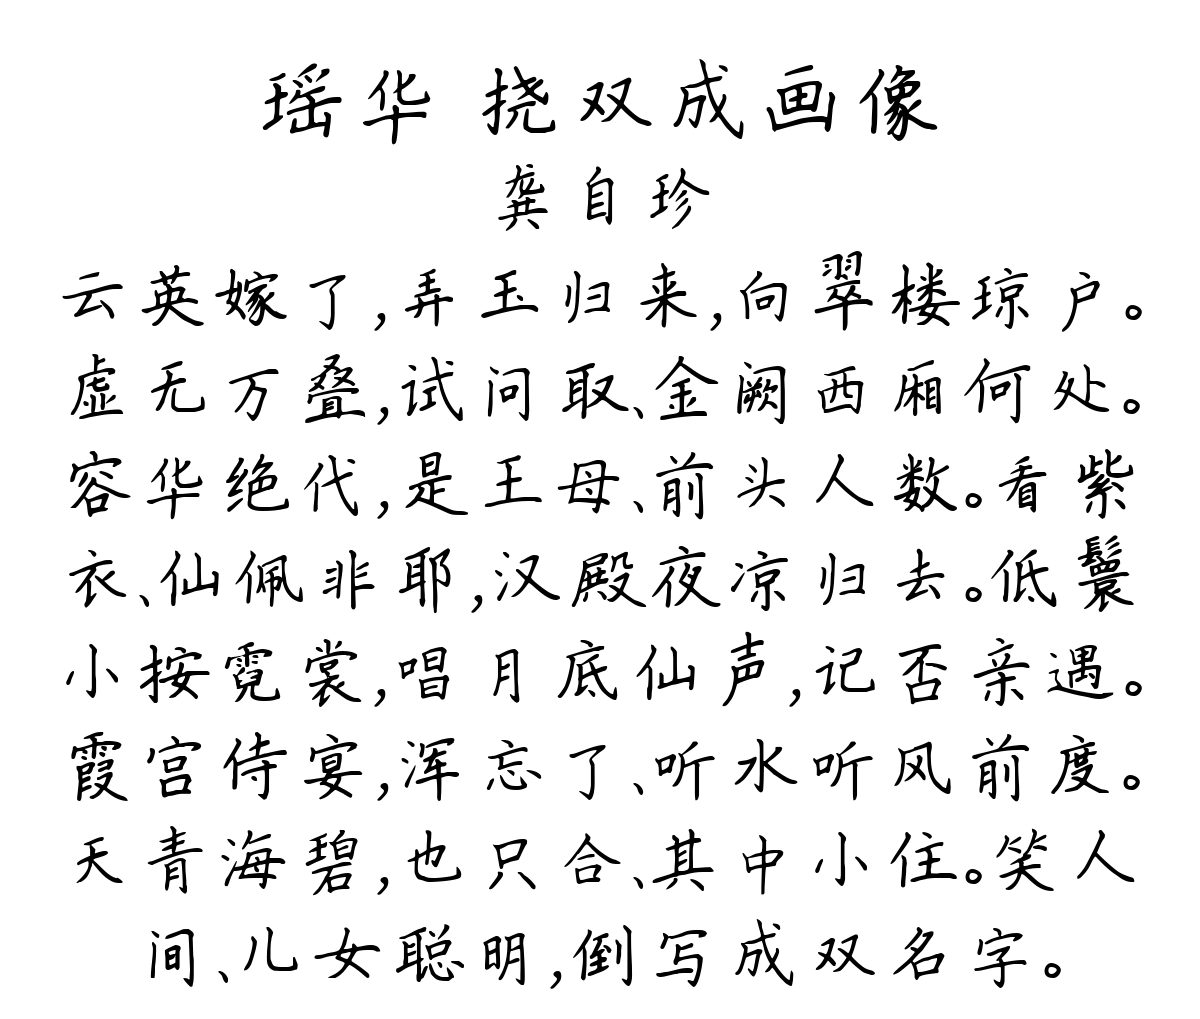 瑶华 挠双成画像
龚自珍
云英嫁了,弄玉归来,向翠楼琼户。
虚无万叠,试问取、金阙西厢何处。
容华绝代,是王母、前头人数。看紫
衣、仙佩非耶,汉殿夜凉归去。低鬟
小按霓裳,唱月底仙声,记否亲遇。
霞宫侍宴,浑忘了、听水听风前度。
天青海碧,也只合、其中小住。笑人
间、儿女聪明,倒写成双名字。